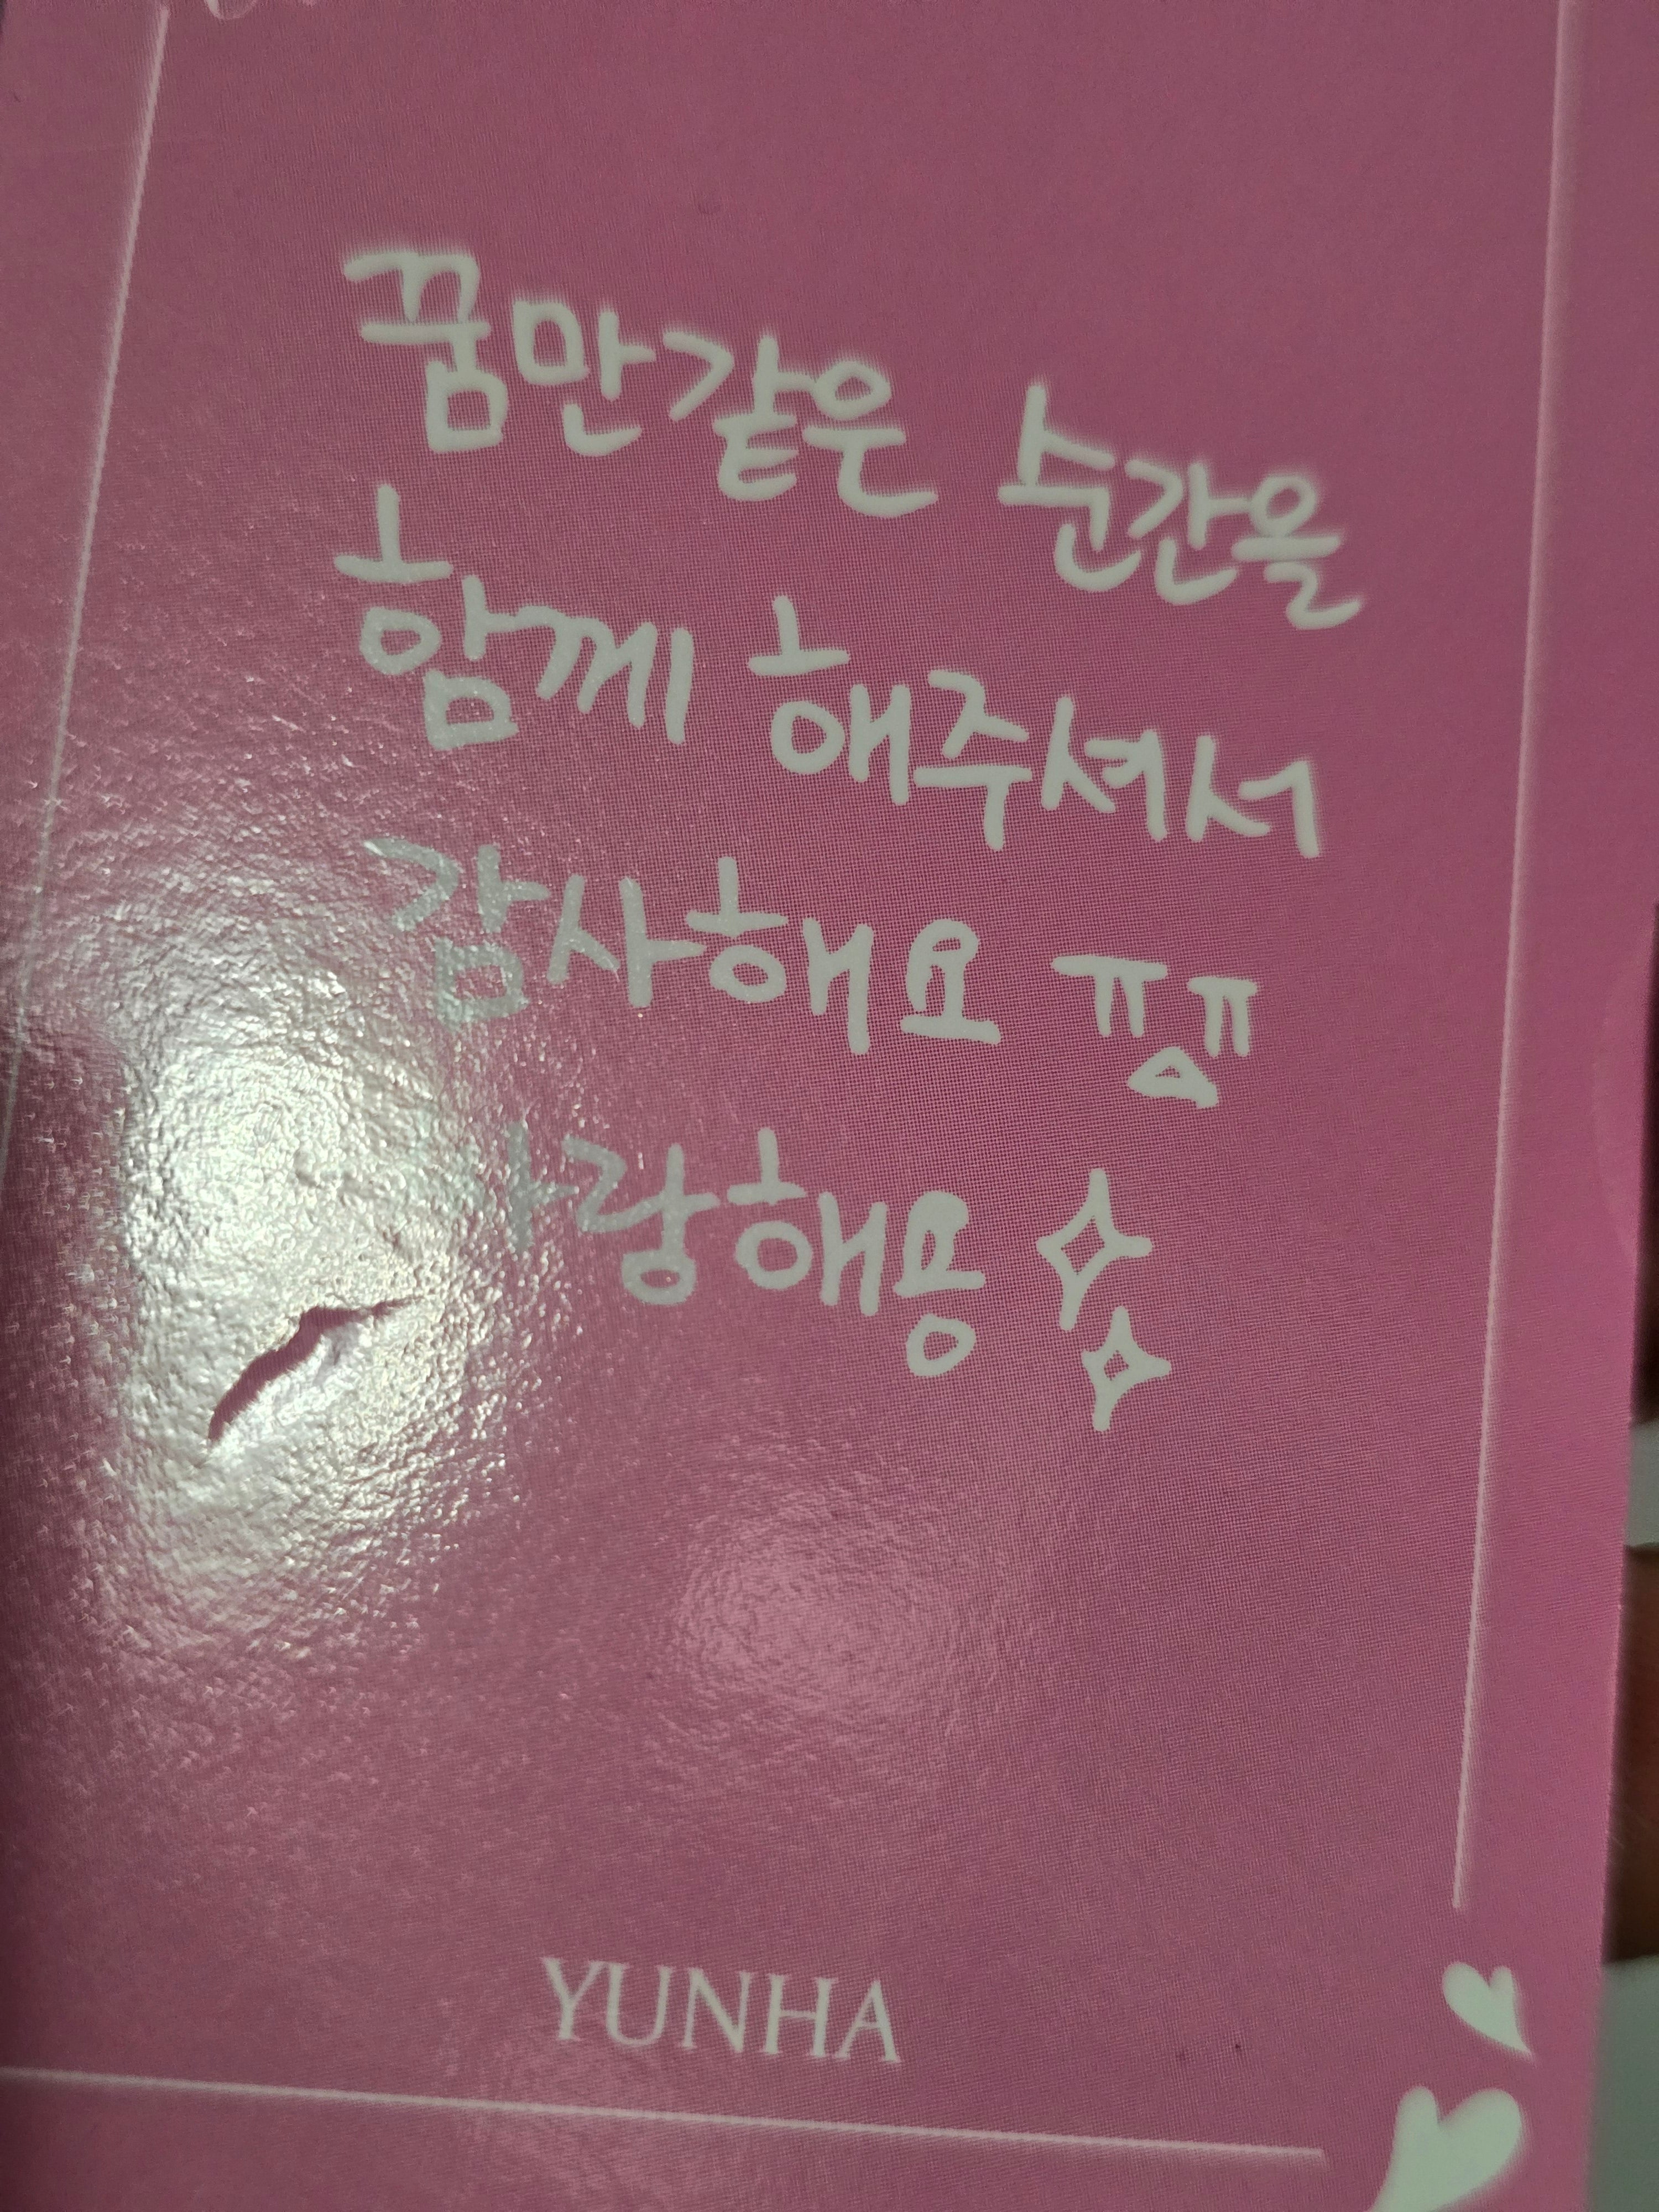 꿈만같은 순간을
함께 해주셔서
감사해요 ㅠㅠ
사랑해용
YUNHA